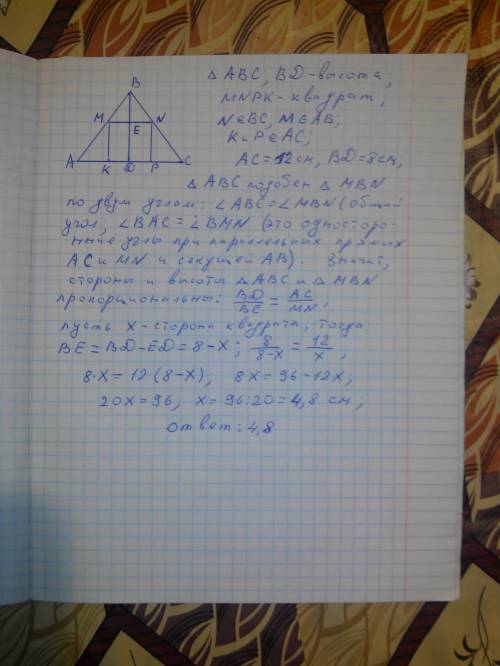 B
M N
E
A K D P C
△ ABC, BD-высота,
MNPK-квадрат,
N∈BC, M∈AB,
K и P∈AC;
AC=12см, BD=8см,
△ ABC подобен △ MBN
по двум углам: ∠ABC=∠MBN (общий
угол; ∠BAC=∠BMN (это односторо-
нние углы при параллельных прямых
AC и MN и секущей AB). Значит,
стороны и высоты △ABC и △MBN
пропорциональны: BD/BE = AC/MN,
пусть x-сторона квадрата, тогда
BE=BD-ED=8-x; 8/8-x = 12/x,
8·x=12·(8-x); 8x=96-12x,
20x=96, x=96:20=4,8 см;
ответ: 4,8